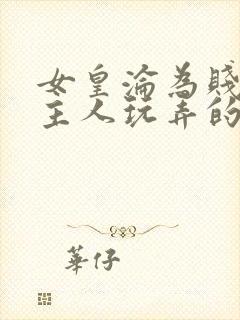 女皇淪為賤
主人玩弄的
華仔